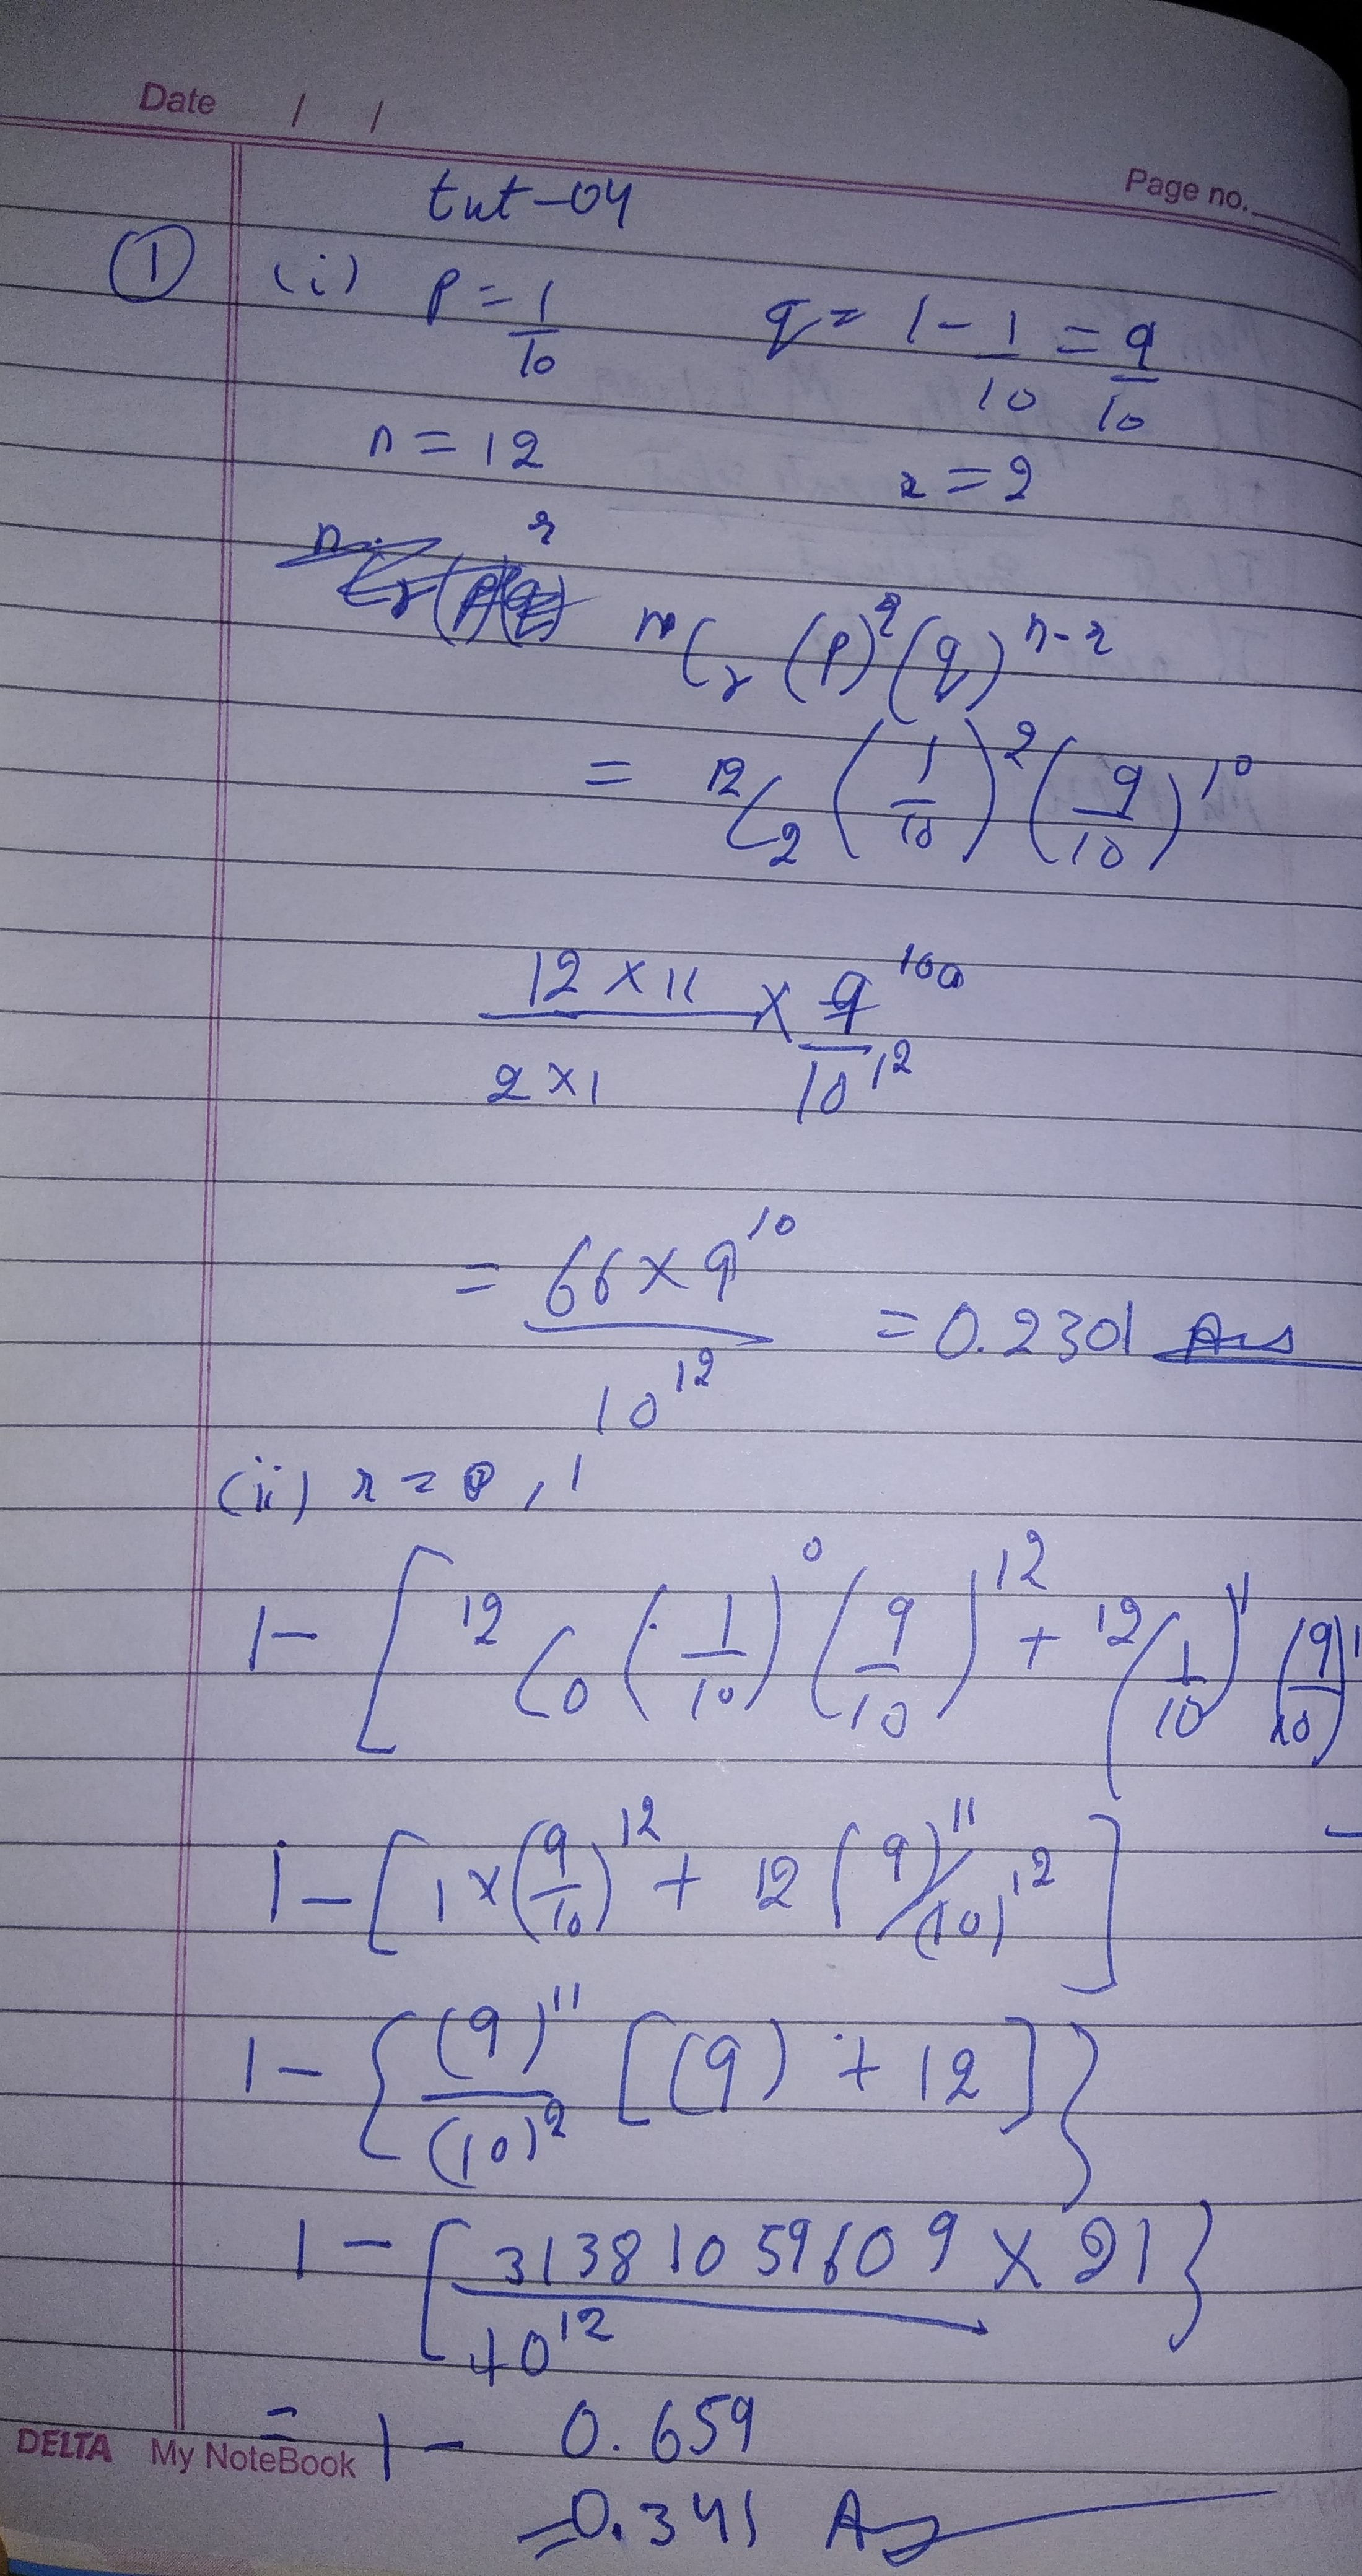 Date / /
Page no.
tut-04
① (i) p = 1/10 q = 1 - 1/10 = 9/10
n = 12 r = 2
nCr (p)^r (q)^n-r
= 12C2 (1/10)^2 (9/10)^10
12 × 11 / 2 × 1 × 9^10 / 10^12
= 66 × 9^10 / 10^12 = 0.2301 Ans
(ii) r = 0, 1
1 - [ 12C0 (1/10)^0 (9/10)^12 + 12 (1/10)^1 (9/10)^1
1 - [ 1 × (9/10)^12 + 12 (9)^11/(10)^12 ]
1 - { (9)^11 / (10)^2 [(9) + 12] }
1 - [ 31381059609 × 21 / 10^12 }
= 1 - 0.659
= 0.341 Ans
DELTA My NoteBook